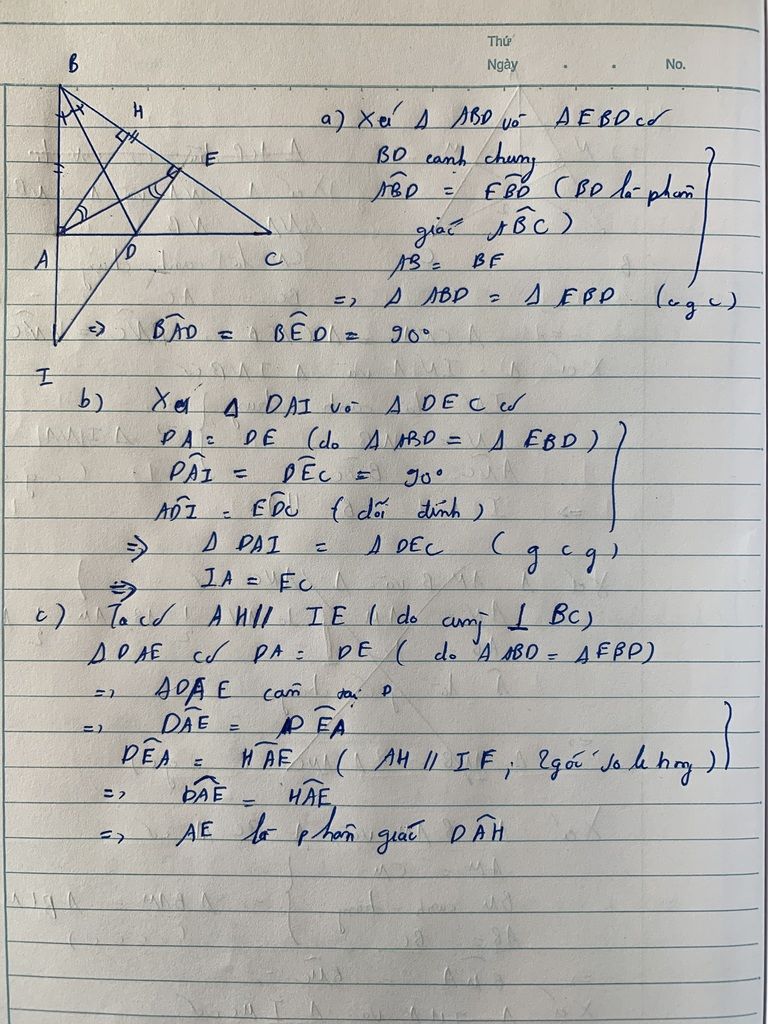 Thứ
Ngày . . No.
B
H
E
A
D
C
I
a) Xét Δ ABD và Δ EBD có
BD cạnh chung
ABD̂ = EBD̂ (BD là phân
giác AB̂C)
AB = BE
=> Δ ABD = Δ EBD (c g c)
=> BÂD = BÊD = 90°
b) Xét Δ DAI và Δ DEC có
DA = DE (do Δ ABD = Δ EBD)
DÂI = DÊC = 90°
AD̂I = ED̂C (đối đỉnh)
=> Δ DAI = Δ DEC (g c g)
=> IA = EC
c) Ta có AH // IE (do cùng ⊥ BC)
Δ DAE có DA = DE (do Δ ABD = Δ EBD)
=> ΔDAE cân tại D
=> DÂE = DÊA
DÊA = HÂE (AH // IE; 2 góc so le trong)
=> DÂE = HÂE
=> AE là phân giác DÂH